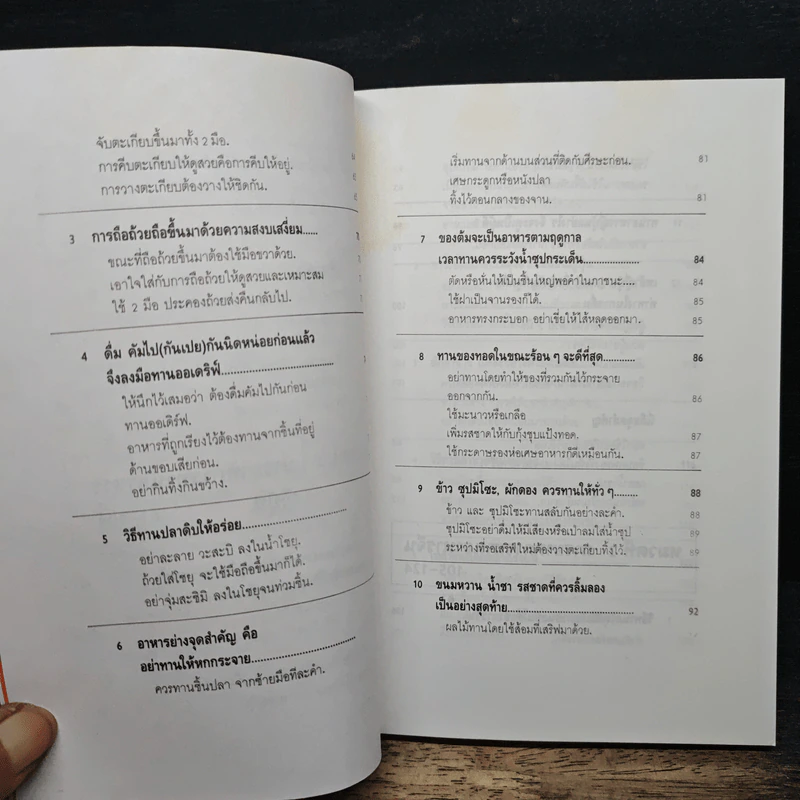 จับตะเกียบขึ้นมาทั้ง 2 มือ.
การคีบตะเกียบให้ดูสวยคือการคีบให้อยู่.
การวางตะเกียบต้องวางให้ชิดกัน.
3 การถือถ้วยถือขึ้นมาด้วยความสงบเสงี่ยม.....
ขณะที่ถือถ้วยขึ้นมาต้องใช้มือขวาด้วย.
เอาใจใส่กับการถือถ้วยให้ดูสวยและเหมาะสม
ใช้ 2 มือ ประคองถ้วยส่งคืนกลับไป.
4 ดื่ม คัมไป(กันเปย)กันนิดหน่อยก่อนแล้ว
จึงลงมือทานออเดริฟ์..........................
ให้นึกไว้เสมอว่า ต้องดื่มคัมไปกันก่อน
ทานออเดิร์ฟ.
อาหารที่ถูกเรียงไว้ต้องทานจากชิ้นที่อยู่
ด้านขอบเสียก่อน.
อย่ากินทิ้งกินขว้าง.
5 วิธีทานปลาดิบให้อร่อย......................
อย่าละลาย วะสะบิ ลงในน้ำโชยุ.
ถ้วยใส่โชยุ จะใช้มือถือขึ้นมาก็ได้.
อย่าจุ่มสะชิมิ ลงในโชยุจนท่วมชิ้น.
6 อาหารย่างจุดสำคัญ คือ
อย่าทานให้หกกระจาย......................
ควรทานชิ้นปลา จากซ้ายมือทีละคำ.
เริ่มทานจากด้านบนส่วนที่ติดกับศีรษะก่อน. 81
เศษกระดูกหรือหนังปลา
ทิ้งไว้ตอนกลางของจาน. 81
7 ของต้มจะเป็นอาหารตามฤดูกาล
เวลาทานควรระวังน้ำซุปกระเด็น............. 84
ตัดหรือหั่นให้เป็นชิ้นใหญ่พอคำในภาชนะ..... 84
ใช้ฝาเป็นจานรองก็ได้. 85
อาหารทรงกระบอก อย่าเขี่ยให้ไส้หลุดออกมา. 85
8 ทานของทอดในขณะร้อน ๆ จะดีที่สุด............ 86
อย่าทานโดยทำให้ของที่รวมกันไว้กระจาย
ออกจากกัน. 86
ใช้มะนาวหรือเกลือ
เพิ่มรสชาดให้กับกุ้งชุบแป้งทอด. 87
ใช้กระดาษรองห่อเศษอาหารก็ดีเหมือนกัน. 87
9 ข้าว ซุปมิโซะ, ผักดอง ควรทานให้ทั่ว ๆ......... 88
ข้าว และ ซุปมิโซะทานสลับกันอย่างละคำ. 89
ซุปมิโซะอย่าดื่มให้มีเสียงหรือเป่าลมใส่น้ำซุป 89
ระหว่างที่รอเสริฟ์ใหม่ต้องวางตะเกียบทิ้งไว้. 89
10 ขนมหวาน น้ำชา รสชาดที่ควรลิ้มลอง
เป็นอย่างสุดท้าย............................ 92
ผลไม้ทานโดยใช้ส้อมที่เสริฟมาด้วย.